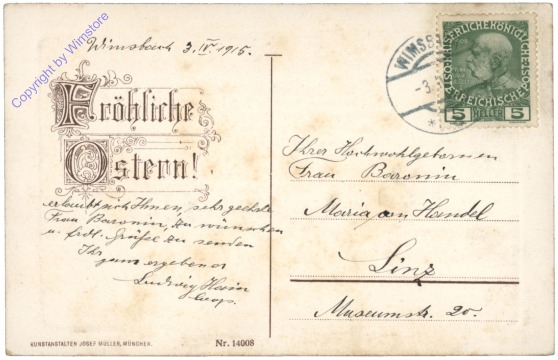 Wimsbach 3.IV.1915.
Fröhliche
Ostern!
erlaubt sich Ihnen, sehr geehrte
Frau Baronin, zu wünschen
u. erdl. Grüße zu senden
Ihr
ganz ergebener
Ludwig
Coop.
WIMSB
-3.
KAISERLICHE KÖNIGLICHE ÖSTERREICHISCHE POST
5 HELLER 5
Ihrer Hochwohlgeboren
Frau Baronin
Maria von Handel
Linz
Museumstr. 20.
KUNSTANSTALTEN JOSEF MÜLLER, MÜNCHEN.
Nr. 14008
Copyright by Wimstore